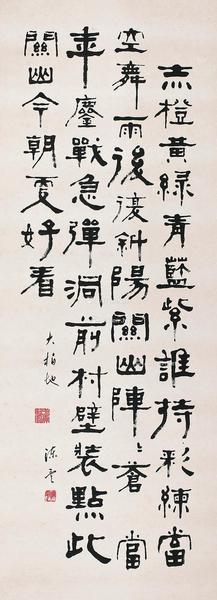 赤橙黃緑青藍紫誰持彩練當
空舞雨後復斜陽關山陣〻蒼 當
年鏖戰急彈洞前村壁裝點此
關山今朝更好看
大柏地
陈云